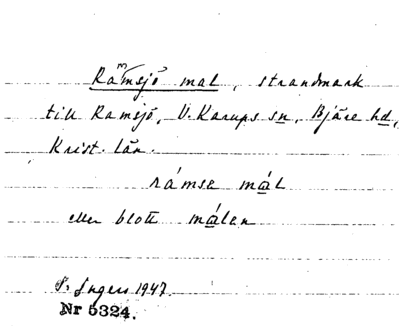 Ramsjö mal, strandmark
till Ramsjö, V. Karups sn, Bjäre hd,
Krist. län.
rámse mál
eller blott målen
I. Ingers 1947.
Nr 5324.